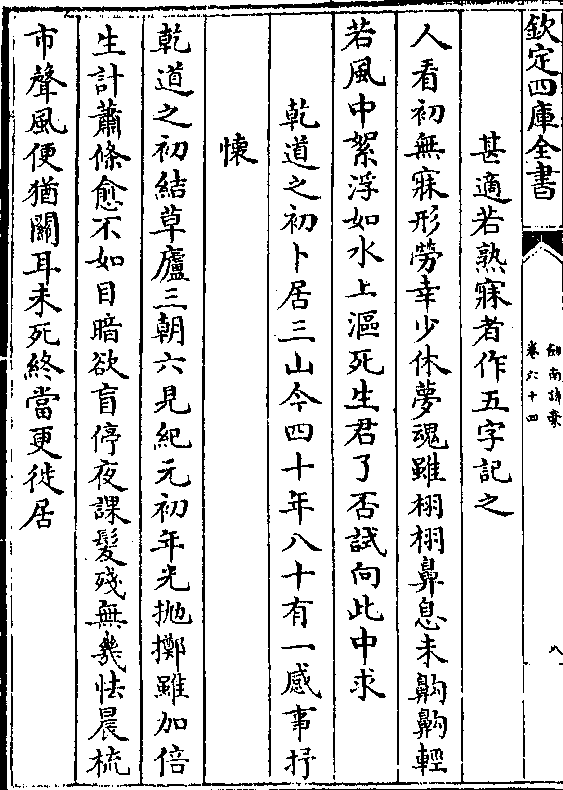 欽定四庫全書
劍南詩稾
卷六十四
八
甚適若熟寐者作五字記之
人看初無寐形勞幸少休夢魂雖栩栩鼻息未齁齁輕
若風中絮浮如水上漚死生君了否試向此中求
乾道之初卜居三山今四十年八十有一感事抒
懐
乾道之初結草廬三朝六見紀元初年光拋擲雖加倍
生計蕭條愈不如目暗欲盲停夜課髮殘無幾怯晨梳
市聲風便猶關耳未死終當更徙居